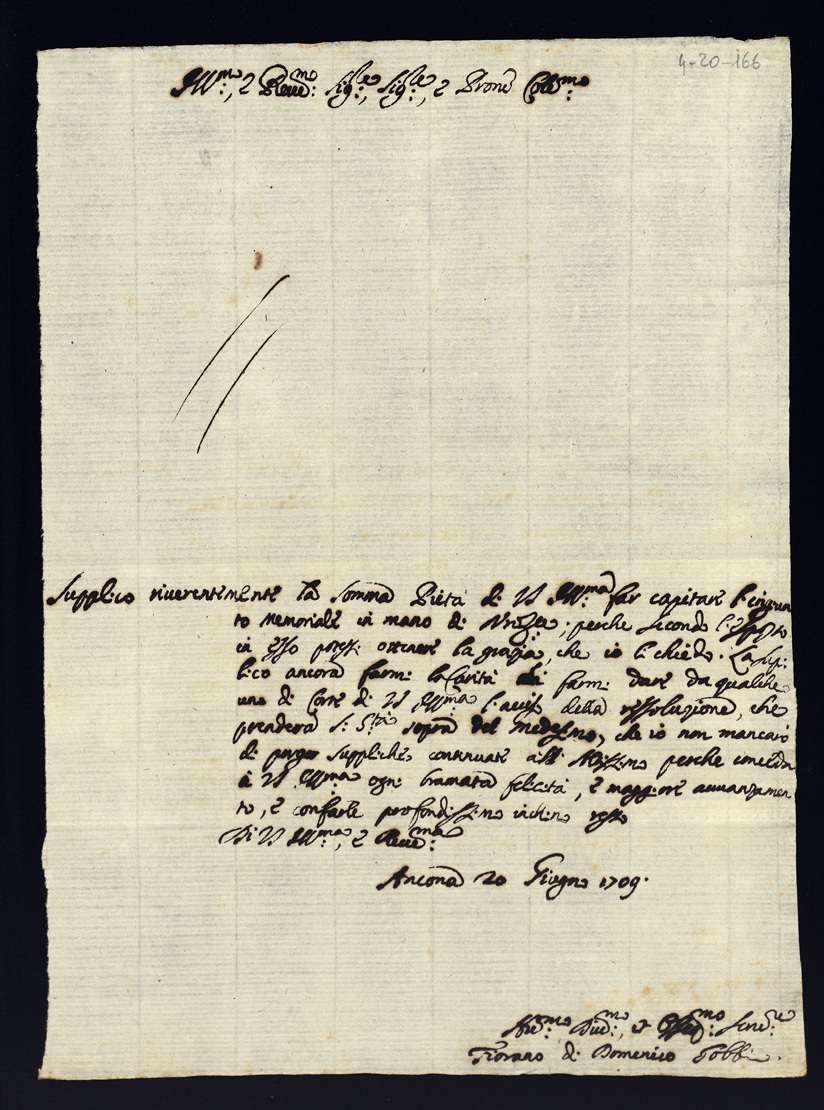 4-20-166
Ill:mo, e Reue:mo Sig:re, Sig:re, e Prone Cole:mo
Supplico riuerentemente la somma Pietà di VS Ill:ma far capitare l'ingiun
to Memoriale in mano di ; perche secondo l'esposto
in esso possi ottenere la grazia, che io li chiedo. La sup:
lico ancora farmi la Carità di farmi dare da qualche
uno di Corte di VS Ill:ma l'auiso della ressoluzione, che
prenderà S: S:tà sopra del medesmo, che io non mancarò
di porger suppliche continuate all'Altissimo perche conceda
à VS Ill:ma ogni bramata felicità, e maggiore auuanzamen
to, e con farle profondissimo inchino resto
Di VS Ill:ma, e Reue:ma
Ancona 20 Giugno 1709.
Diu:mo, et Osse:mo Seruo:re
di Domenico